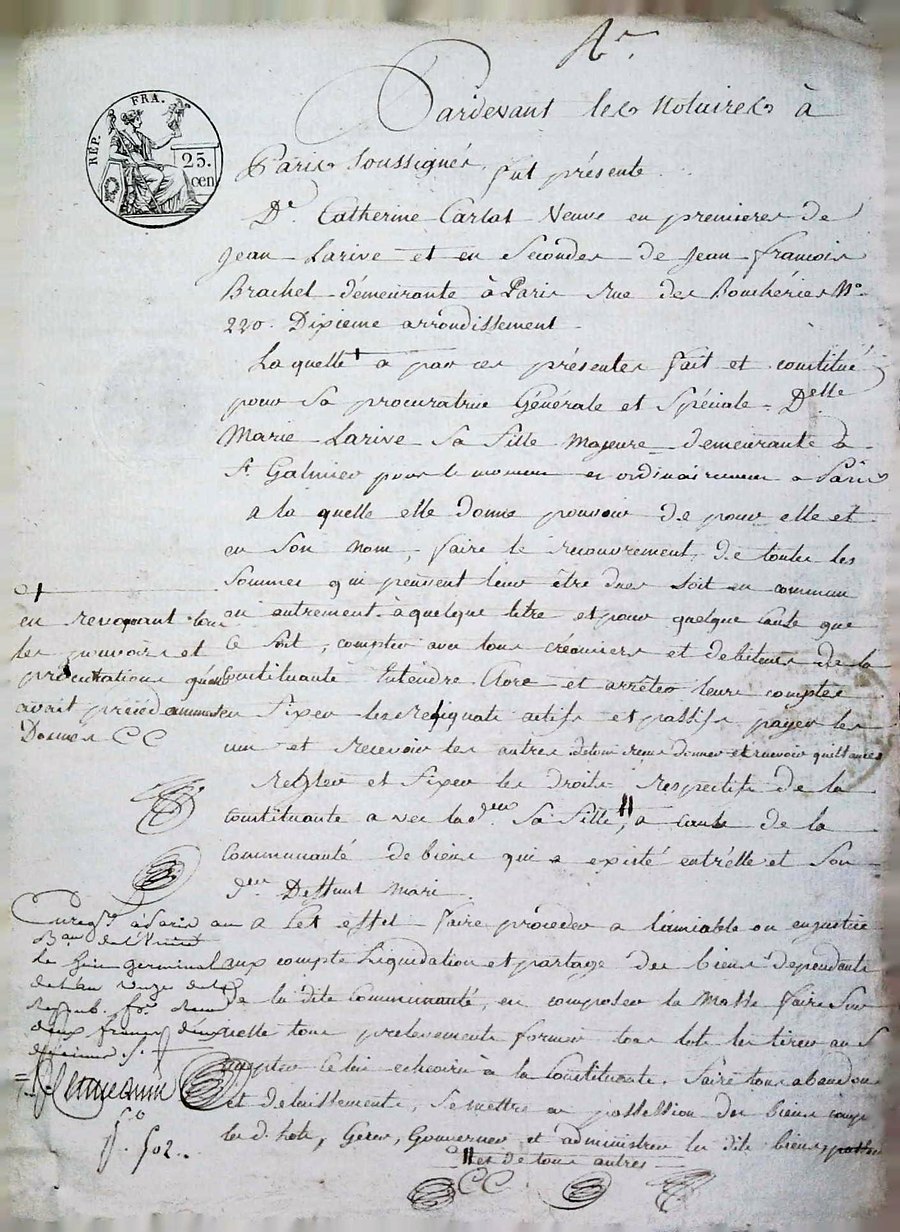 RÉP. FRA.
25.
cen
Pardevant les Notaires à
Paris soussignés, fut présente
De. Catherine Carlat Veuve en premieres de
Jean Larive et en Secondes de Jean françois
Brachet demeurante à Paris rue des Bouchéries No.
220. Dixieme arrondissement
La quelle a par ces présentes fait et constitué
pour sa procuratrice Générale et Spéciale Delle
Marie Larive sa fille Majeure demeurante à
St. Galmier pour le moment et ordinairement a Paris
a la quelle elle donne pouvoir de pour elle et
en son nom faire le recouvrement de toutes les
Sommes qui peuvent leur être dues soit en commun
ou autrement à quelque titre et pour quelque cause que
ce soit, compter avec tous créanciers et debiteurs de la
Constituante Entendre Clore et arrêter leurs comptes
en fixer les reliquats actifs et passifs payer les
uns et recevoir les autres de tous reçus donner et recevoir quittances
Regler et fixer les droits respectifs de la
Constituante avec lad. sa fille, a cause de la
Communauté de biens qui a existé entr'elle et son
Deffunt Mari
a Cet effet faire procéder a l'amiable ou en justice
aux compte Liquidation et partage des biens dependants
de la dite Communauté, en composer la Masse faire sur
icelle tous prelevements former tous lots les tirer au S
accepter celui echeoir à la Constituante, faire tous abandons
et delaissements, se mettre en possession des biens comp
les d. lots, Gerer, Gouverner et administrer les dits biens,
et de tous autres
CC
en revoquant tous
les pouvoirs et
procurations qu'elle
avait précédamment
Donnés CC
Enregé. à Paris au
Bau de
le germinal
de l'an onze de la
Repub. fse. Reçu
deux francs
f.o
502..